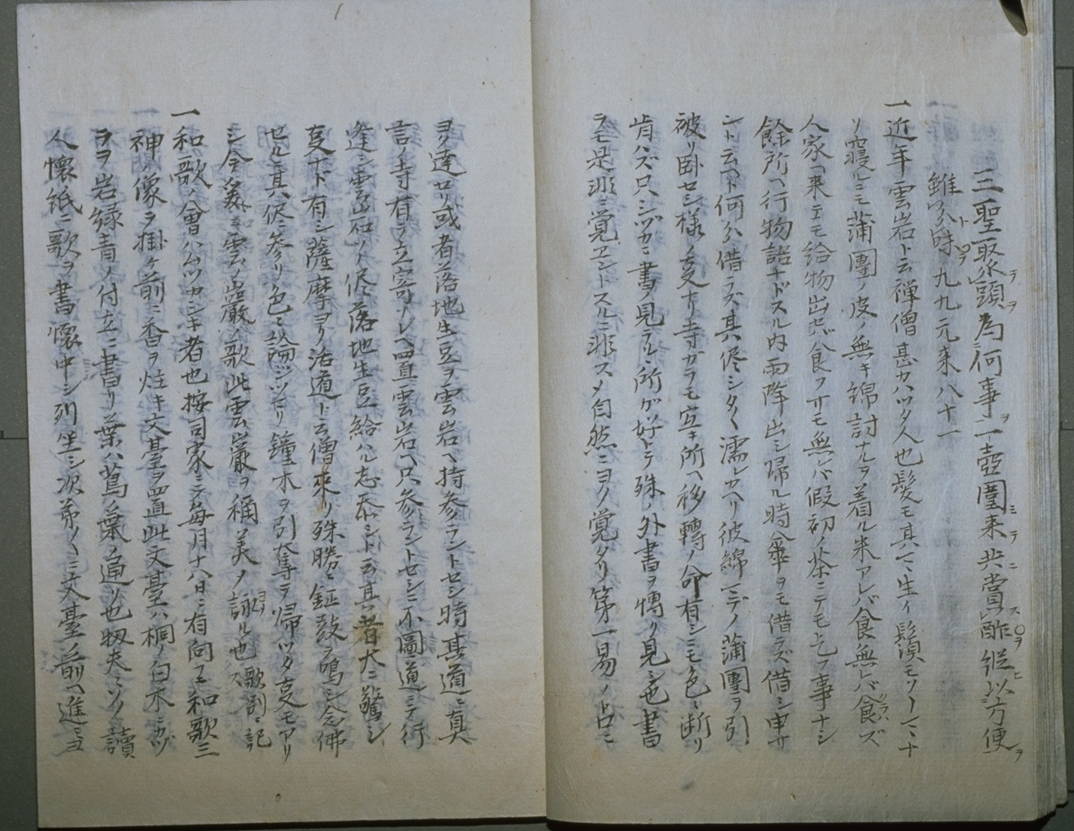 三聖聚頭為何事一壺圍来共賞酢縦以方便
雖分味九九元来八十一
一近年雲岩ト云禅僧甚カハツタ人也髪モ其ハヘ生イ鬚モ
リ寝ルニモ蒲團ノ皮ノ無キ綿討ヲ着ル米アレバ食無レバ食ズ
人家ヘ来エモ給物出セバ食フサモ無レバ假初ノ茶ニテモ乞フ事ナシ
餘所ヘ行物語ナドスル内雨降出シ帰ル時傘ヲモ借ズ借シ申サ
ント云ヘド何ハ借ラズ其侭シタヽ濡レカヘリ彼綿ニテノ蒲團ヲ引
被リ臥セシ様ノ支ナド寺ガラモ宜キ所ヘ移轉ノ命有シニモ色々断リ
肯ハズ只シヅカニ書ヲ見ル所ガ好トラ殊ノ外書ヲ博ク見シ也書
ヲモ是非ニ覚エントスルニ非ズ自然ニヨク覚タリ第一易ノトコニ
ヲ達ロリ或者落地生豆ヲ雲岩ヘ持参ラントセシ時其道ニ真
言ノ寺有ラ立寄リシヘ直ニ雲岩ヘ只参ラントセシニ不圖道ニテ行
逢シニ雲岩何ノ侭落地生豆給ハル志忝シト云其者大ニ驚シ
支ナド有シ薩摩ヨリ活道ト云僧来リ殊勝ニ鉦鼓ヲ鳴シ念佛
セルニ其侭ニ参リ色々論シツヽリ鐘木ヲ引奪ヲ帰ツタ支モアリ
シ今 雲ノ巌ノ歌此雲巌ヲ稱美ノ詠ル也歌別ニ記ス
一和歌ノ會ハムツカシキ者也按司家ニテ毎月十八日ニ有向フニ和歌三
神ノ像ヲ掛ケ前ニ香ヲ炷キ文臺ヲ置此文臺ハ桐ノ白木ニカヅ
ラヲ岩緑青ノ付立ニ書リ葉ハ蔦ノ葉ノ通リ也扨夫ニソリ讀
人懐紙ニ歌ヲ書懐中シ列坐シ次第々々ニ文臺ノ前ヘ進ミヨ